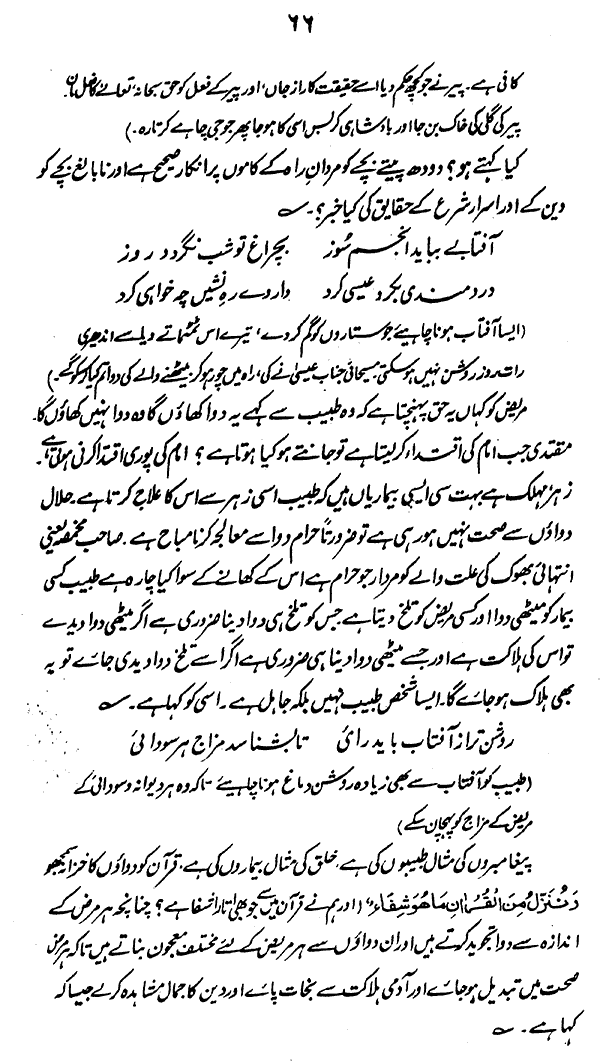 ۶۶
کافی ہے۔ پیر نے جو کچھ حکم دیا اسے حقیقت کا راز جان، اور پیر کے فعل کو حق سبحانہ تعالےٰ کا فضل مان۔
پیر کی گلی کی خاک بن جا اور بادشاہی کر بس اسی کا ہو جا پھر جو جی چاہے کرتا رہ۔)
کیا کہتے ہو؟ دودھ پیتے بچے کو مردانِ راہ کے کاموں پر انکار صحیح ہے اور نابالغ بچے کو
دین کے اور اسرارِ شرع کے حقایق کی کیا خبر؟۔ ؎
آفتابے بباید انجم سوز بچراغ تو شب نگردد روز
درد مندی بکرد عیسیٰ کرد داروے رہ نشیں چہ خواہی کرد
(ایسا آفتاب ہونا چاہیئے جو ستاروں کو گم کر دے، تیرے اس ٹمٹماتے دیے سے اندھیری
رات روز روشن نہیں ہو سکتی۔ مسیحائی جناب عیسیٰ نے کی، راہ میں چور ہو کر بیٹھنے والے کی دوا تم کیا کر سکو گے۔)
مریض کو کہاں یہ حق پہنچتا ہے کہ وہ طبیب سے کہے یہ دوا کھاؤں گا وہ دوا نہیں کھاؤں گا۔
مقتدی جب امام کی اقتداء کر لیتا ہے تو جانتے ہو کیا ہوتا ہے؟ امام کی پوری اقتدا کرنی ہوتی ہے۔
زہر مہلک ہے بہت سی ایسی بیماریاں ہیں کہ طبیب اسی زہر سے اس کا علاج کرتا ہے۔ حلال
دواؤں سے صحت نہیں ہو رہی ہے تو ضرورتاً حرام دوا سے معالجہ کرنا مباح ہے۔ صاحب مخمصہ یعنی
انتہائی بھوک کی علت والے کو مردار جو حرام ہے اس کے کھانے کے سوا کیا چارہ ہے طبیب کسی
بیمار کو میٹھی دوا اور کسی مریض کو تلخ دیتا ہے جس کو تلخ ہی دوا دینا ضروری ہے اگر میٹھی دوا دیدے
تو اس کی ہلاکت ہے اور جسے میٹھی دوا دینا ہی ضروری ہے اگر اسے تلخ دوا دیدی جائے تو یہ
بھی ہلاک ہو جائے گا۔ ایسا شخص طبیب نہیں بلکہ جاہل ہے۔ اسی کو کہا ہے۔ ؎
روشن تر از آفتاب باید رائ تا بشناسد مزاج ہر سودائی
(طبیب کو آفتاب سے بھی زیادہ روشن دماغ ہونا چاہیئے تاکہ وہ ہر دیوانہ و سودائی کے
مریض کے مزاج کو پہچان سکے)
پیغامبروں کی مثال طبیبوں کی ہے۔ خلق کی مثال بیماروں کی ہے۔ قرآن کو دواؤں کا خزانہ سمجھو
وَنُنَزِّلُ مِنَ الْقُرْاٰنِ مَا هُوَ شِفَاء (اور ہم نے قرآن میں سے جو بھی اتارا شفا ہے؟ چنانچہ ہر مرض کے
اندازہ سے دوا تجوید کرتے ہیں اور ان دواؤں سے ہر مریض کے لئے مختلف معجون بناتے ہیں تاکہ ہر مرض
صحت میں تبدیل ہو جائے اور آدمی ہلاکت سے نجات پائے اور دین کا جمال مشاہدہ کرے جیسا کہ
کہا ہے۔ ؎